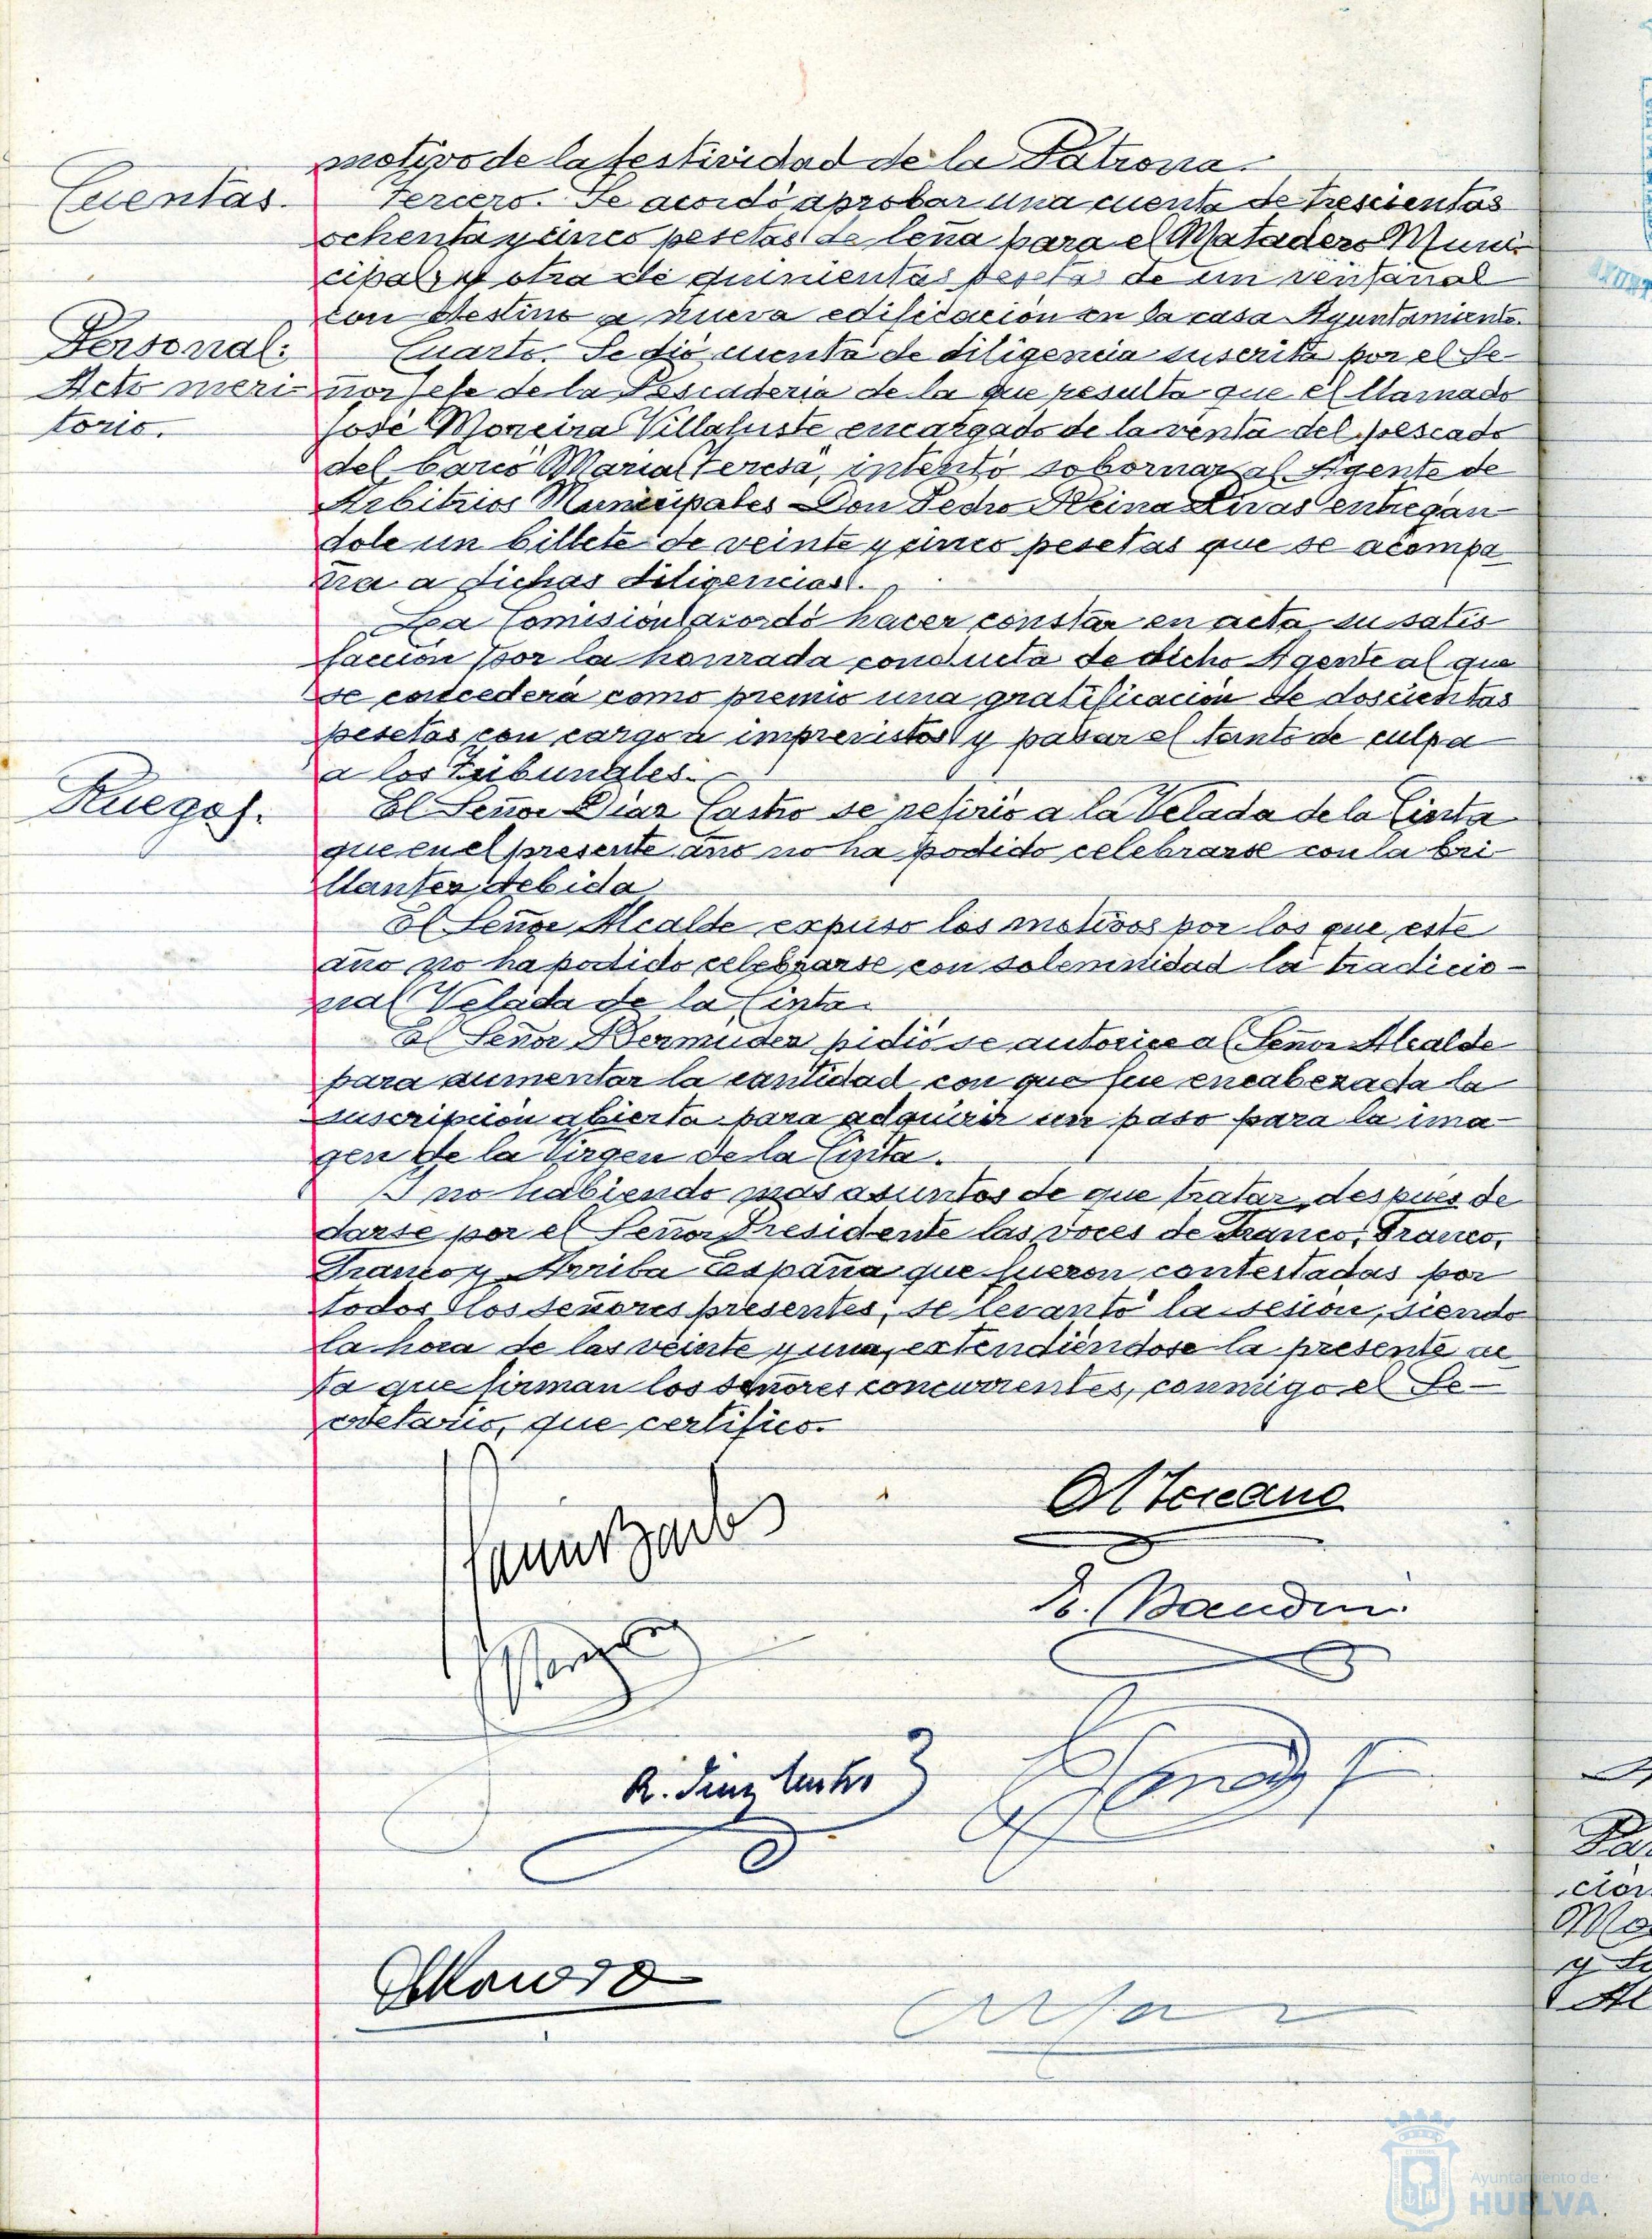 motivo de la festividad de la Patrona.
Cuentas.
Tercero. Se acordó aprobar una cuenta de trescientas
ochenta y cinco pesetas de leña para el Matadero Muni-
cipal, y otra de quinientas pesetas de un ventanal
con destino a nueva edificación en la casa Ayuntamiento.
Personal:
Acto meri-
torio.
Cuarto. Se dió cuenta de diligencia suscrita por el Se-
ñor Jefe de la Pescadería de la que resulta que el llamado
José Moreira Villafuste encargado de la venta del pescado
del barco "Maria Teresa", intentó sobornar al Agente de
Arbitrios Municipales Don Pedro Reina Rivas entregán-
dole un billete de veinte y cinco pesetas que se acompa
ña a dichas diligencias.
La Comisión acordó hacer constar en acta su satis
facción por la honrada conducta de dicho Agente al que
se concederá como premio una gratificación de doscientas
pesetas con cargo a imprevistos y pasar el tanto de culpa
a los Tribunales.
Ruegos.
El Señor Diaz Castro se refirió a la Velada de la Cinta
que en el presente año no ha podido celebrarse con la bri-
llantez debida
El Señor Alcalde expuso los motivos por los que este
año no ha podido celebrarse con solemnidad la tradicio-
nal Velada de la Cinta.
El Señor Bermudez pidió se autorice al Señor Alcalde
para aumentar la cantidad con que fue encabezada la
suscripción abierta para adquirir un paso para la ima-
gen de la Virgen de la Cinta.
Y no habiendo mas asuntos de que tratar, después de
darse por el Señor Presidente las voces de Franco, Franco,
Franco y Arriba España que fueron contestadas por
todos los señores presentes, se levantó la sesión, siendo
la hora de las veinte y una, extendiéndose la presente ac
ta que firman los señores concurrentes, conmigo el Se-
cretario, que certifico.
R. Diaz Castro
Pa
ción
Mo
Al
Ayuntamiento de
HUELVA